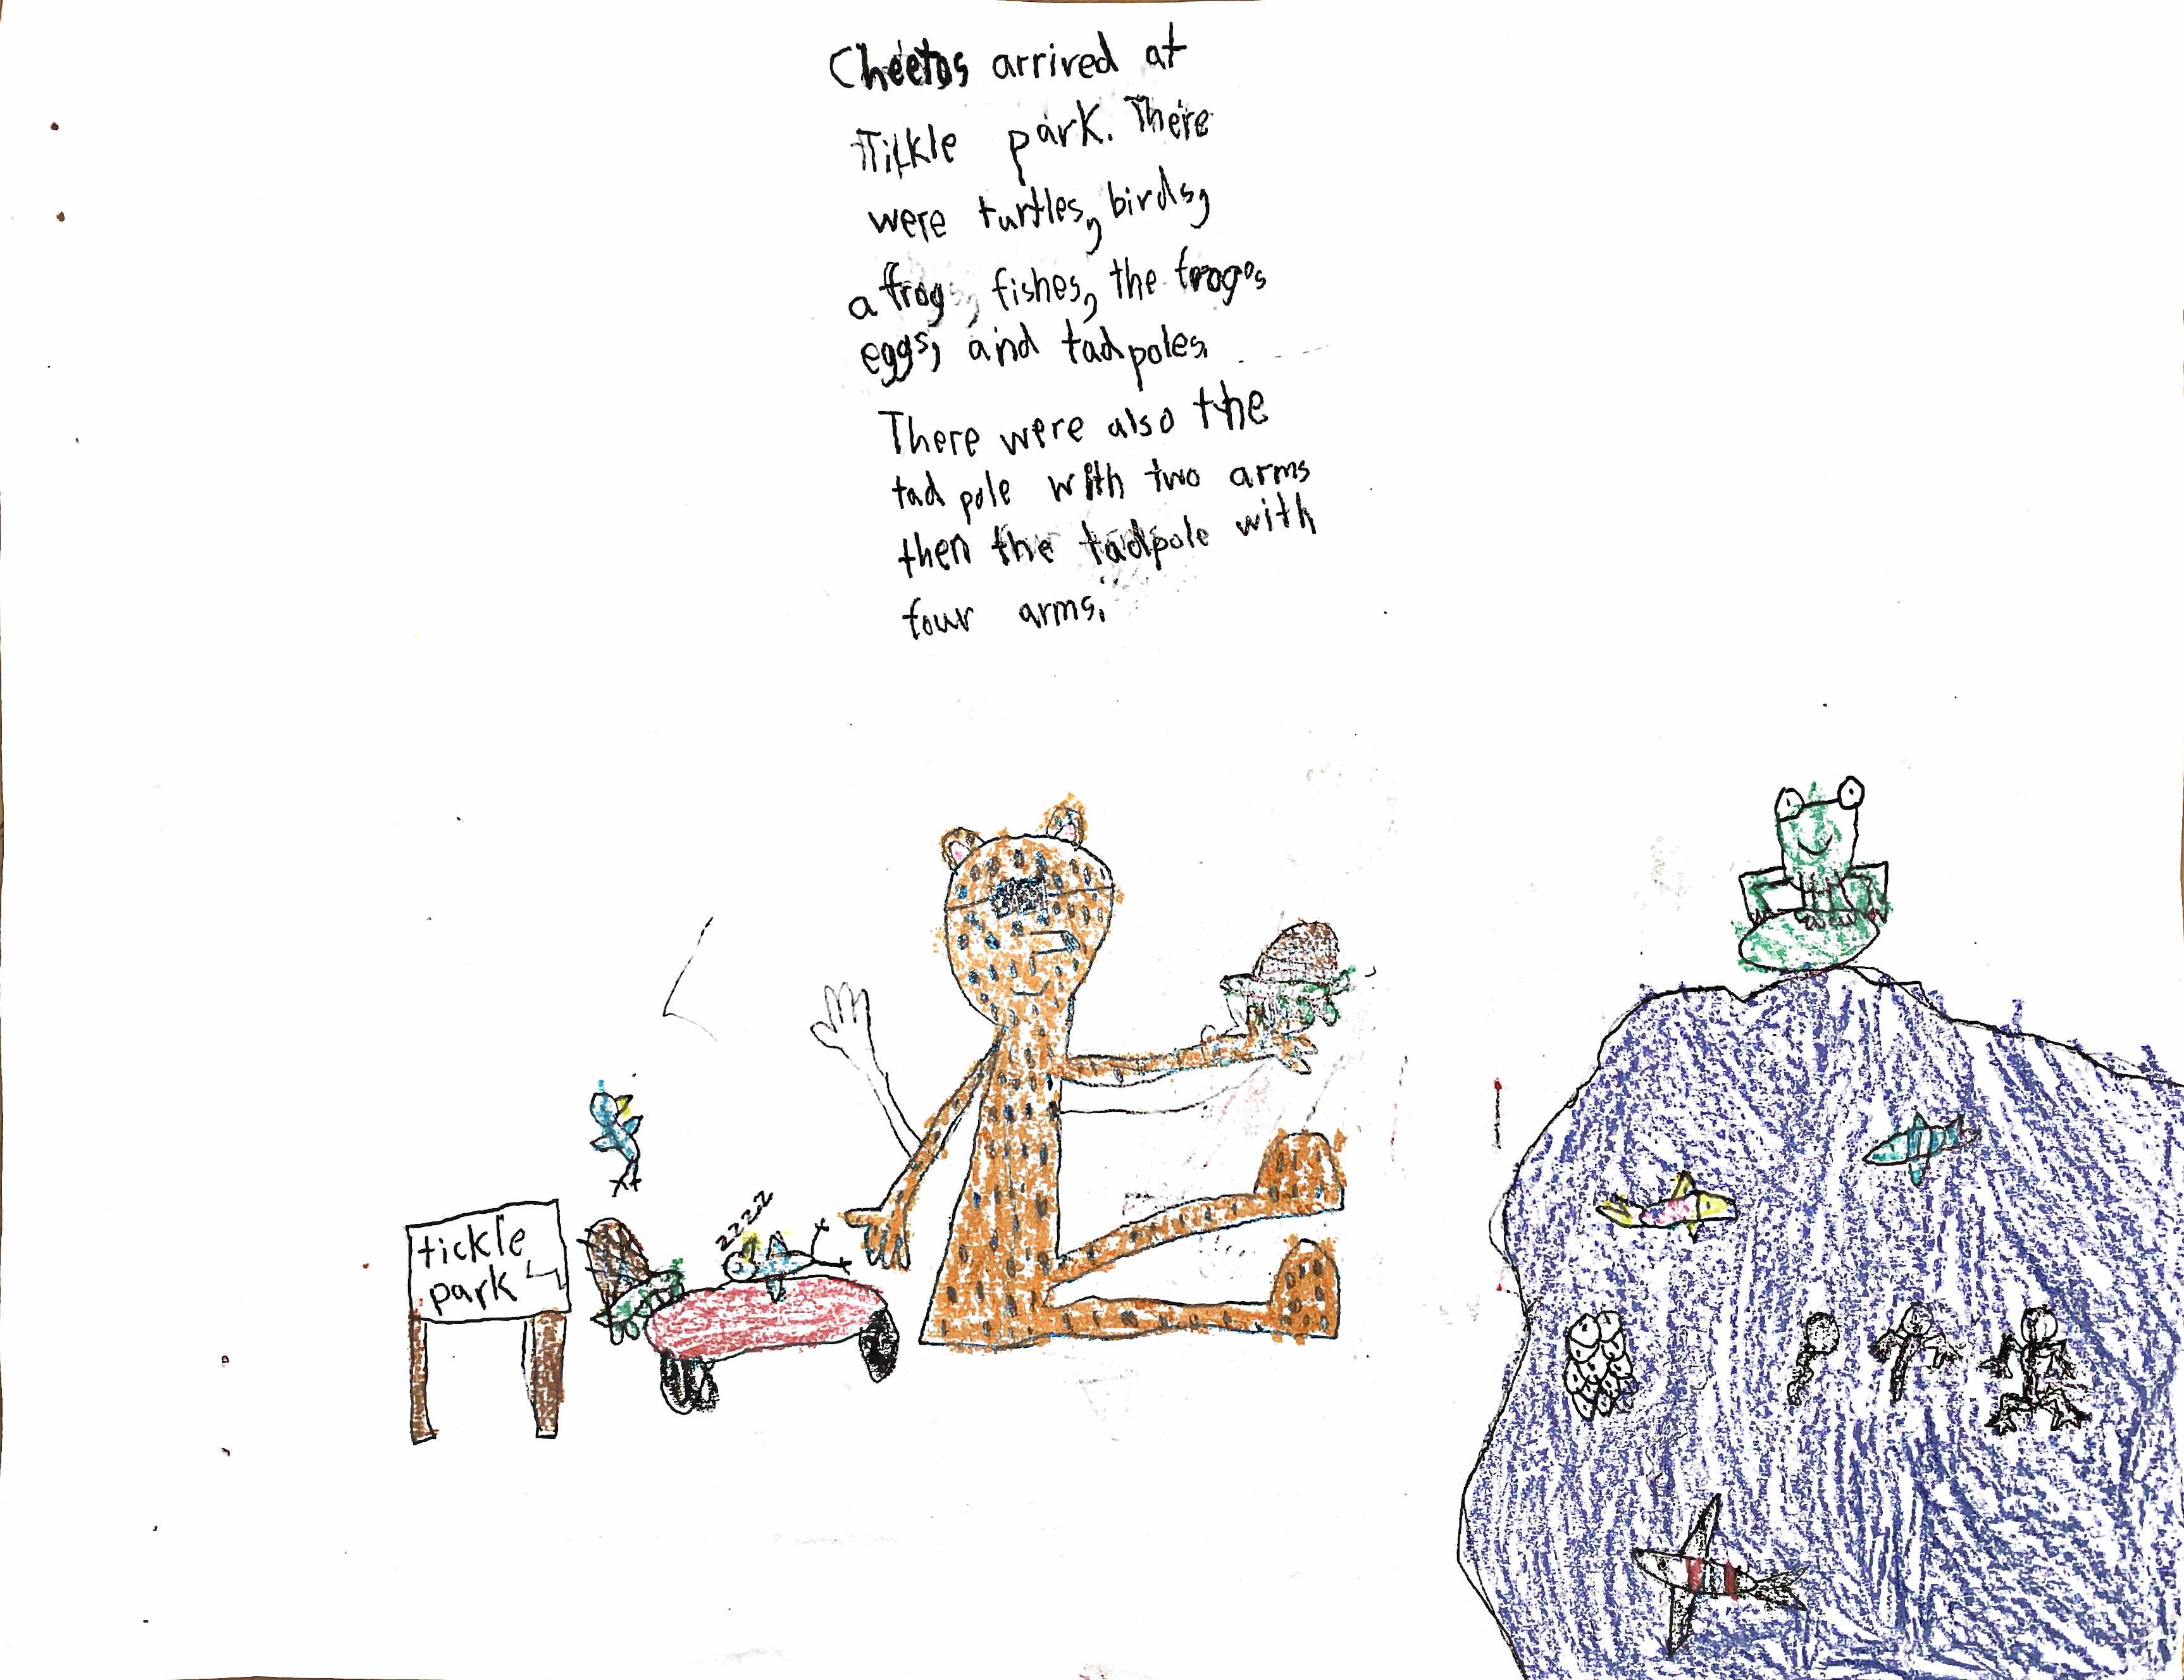 Cheetos arrived at
Tilkle park. There
were turtles, birds,
a frog, fishes, the frogs
eggs, and tadpoles.
There were also the
tad pole with two arms
then the tadpole with
four arms.
zzzz
tickle
park